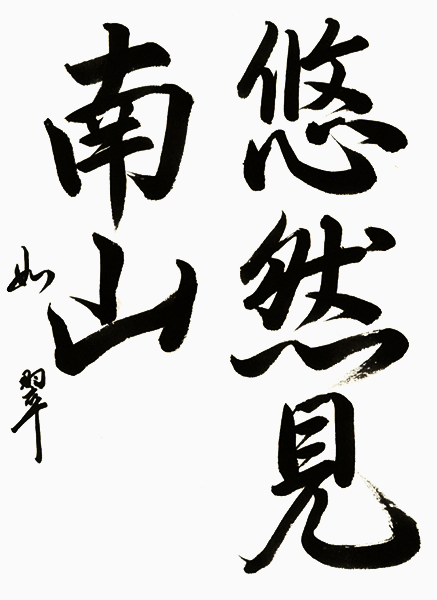 悠然見
南山
如翠